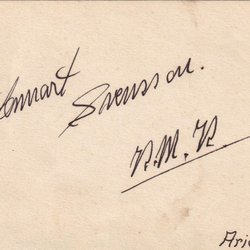 Lennart
Svensson.
R.M.R.
Arie